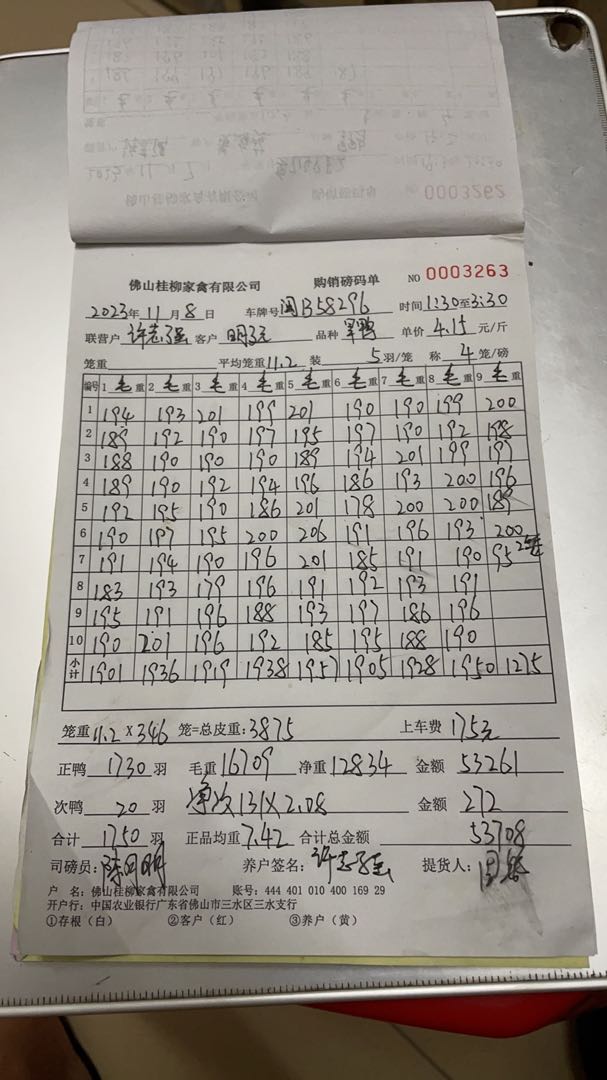 0003262
佛山桂柳家禽有限公司 购销磅码单 NO 0003263
2023年11月8日 车牌号闽B58296 时间1:30至3:30
联营户 许志强 客户 明元 品种 旱鸭 单价 4.15 元/斤
笼重 平均笼重11.2 装 5羽/笼 称 4笼/磅
编号 1毛重 2毛重 3毛重 4毛重 5毛重 6毛重 7毛重 8毛重 9毛重
1 194 193 201 199 201 190 190 199 200
2 189 192 190 197 195 197 190 192 198
3 188 190 190 190 189 194 201 199 197
4 189 190 192 194 196 186 193 200 196
5 192 195 190 186 201 178 200 200 189
6 190 197 195 200 206 191 196 193 200
7 191 194 190 196 201 185 191 190 95 2笼
8 183 193 179 196 191 192 193 191
9 195 191 196 188 193 197 186 196
10 190 201 196 192 185 195 188 190
小计 1901 1936 1919 1938 1957 1905 1928 1950 1275
笼重11.2×346笼=总皮重:3875 上车费 175元
正鸭 1730 羽 毛重16709 净重12834 金额 53261
次鸭 20 羽 净次131×2.08 金额 272
合计 1750 羽 正品均重7.42 合计总金额 53708
司磅员: 养户签名:许志强 提货人:
户 名:佛山桂柳家禽有限公司 账号:444 401 010 400 169 29
开户行:中国农业银行广东省佛山市三水区三水支行
①存根(白) ②客户(红) ③养户(黄)